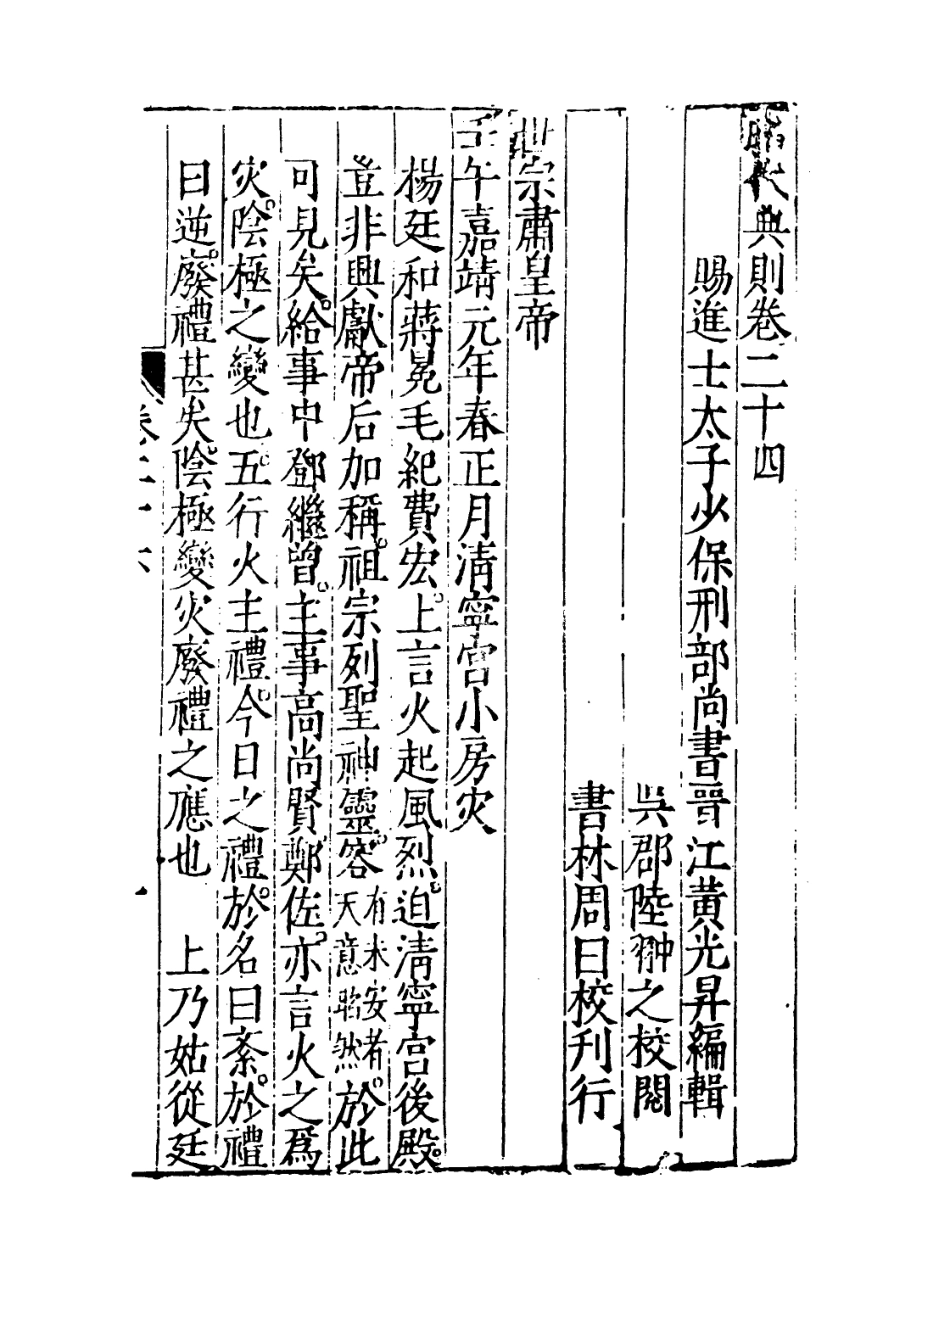 昭代典則卷二十四
賜進士太子少保刑部尚書晉江黃光昇編輯
吳郡陸翀之校閱
書林周曰校刊行
世宗肅皇帝
壬午嘉靖元年春正月清寧宮小房灾
楊廷和蔣冕毛紀費宏上言火起風烈迫清寧宮後殿
豈非興獻帝后加稱祖宗列聖神靈容有未安者天意昭然於此
可見矣給事中鄧繼曾主事高尚賢鄭佐亦言火之爲
灾陰極之變也五行火主禮今日之禮於名曰紊於禮
曰逆廢禮甚矣陰極變灾廢禮之應也　上乃姑從廷